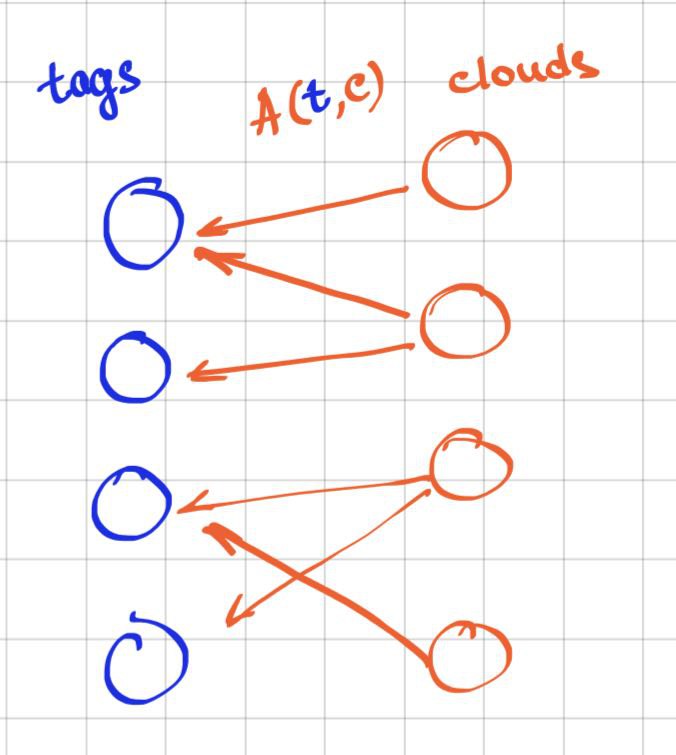 tags A(t,c) clouds